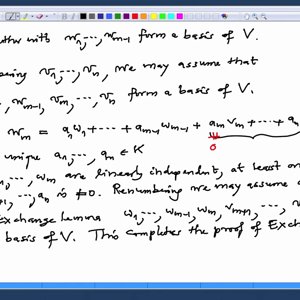 with w₁,⋯,wₘ₋₁ form a basis of V.
being v₁,⋯,vₙ, we may assume that
, wₘ₋₁, vₘ,⋯, vₙ form a basis of V.
wₘ = a₁w₁+⋯+ aₘ₋₁wₘ₋₁ + aₘvₘ+⋯+ aₙ
0
unique a₁,⋯, aₙ ∈ K
⋯, wₘ are linearly independent, at least on
,⋯, aₙ is ≠0. Renumbering we may assume
Exchange Lemma w₁,⋯, wₘ₋₁, wₘ, vₘ₊₁, ⋯,
basis of V. This completes the proof of Exc